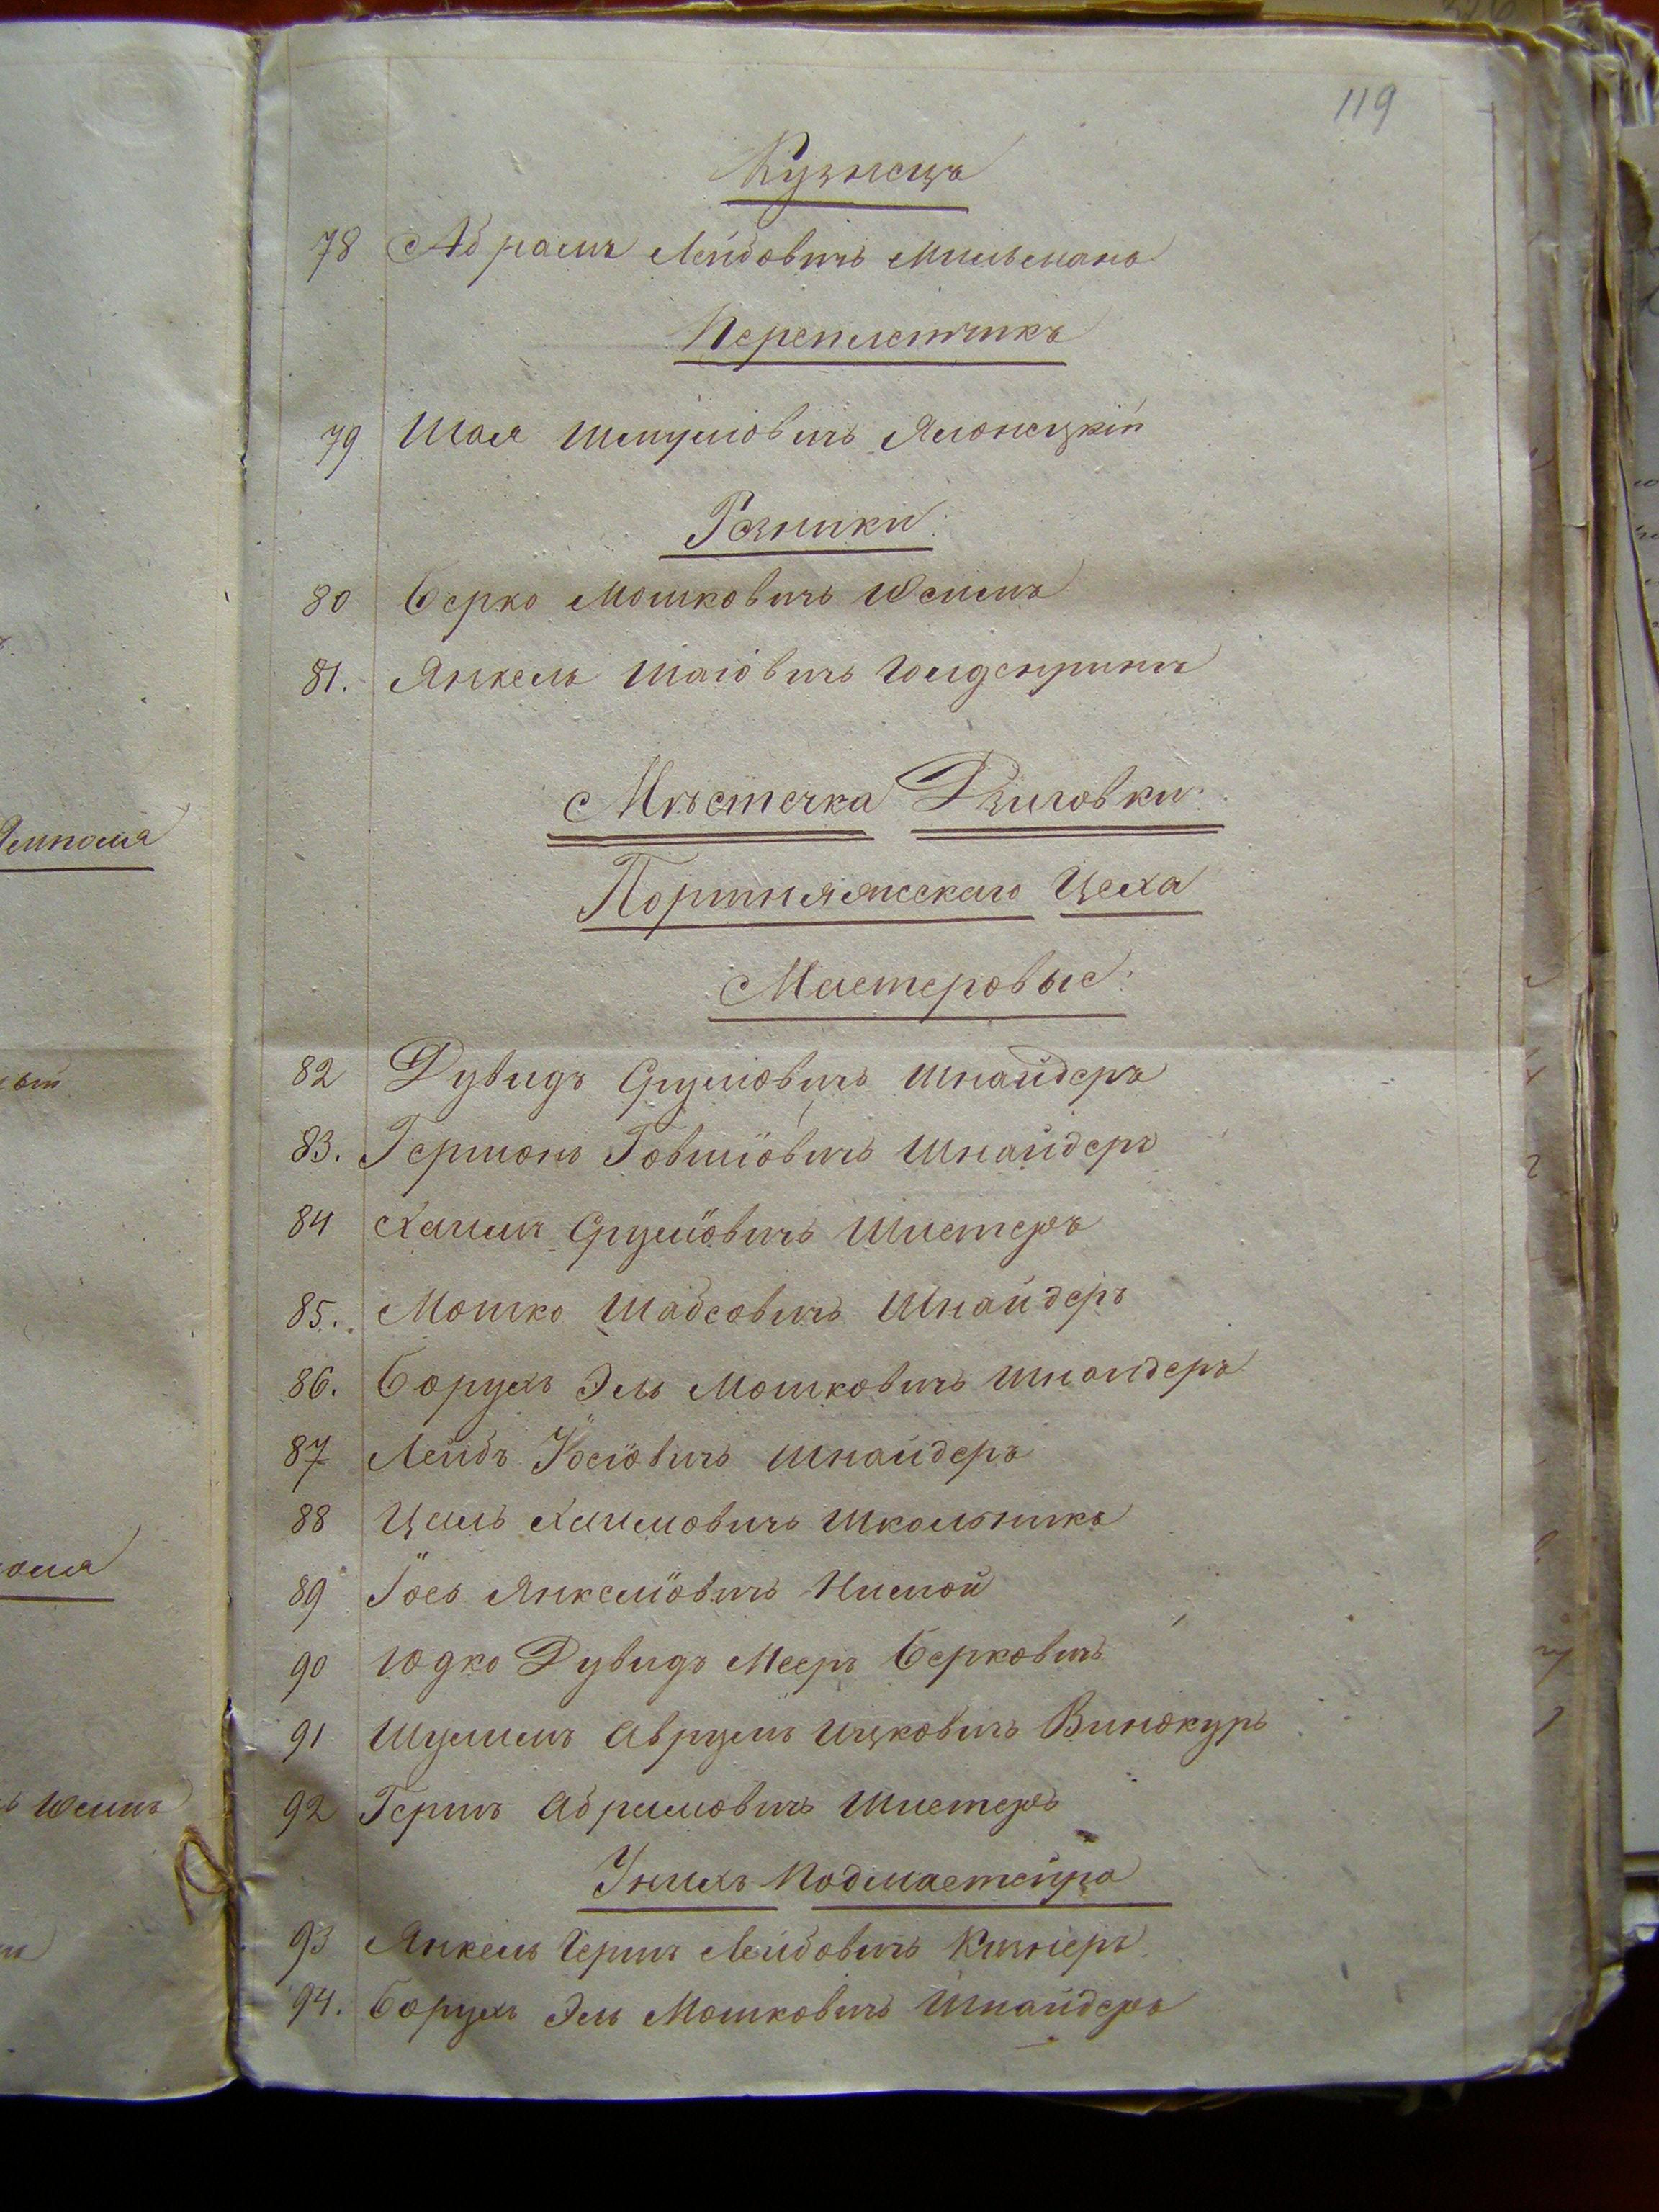 119
Кузнецъ
78 Абрамъ Лейбовичъ Мильманъ
Переплетчикъ
79 Шая Шмулiовичъ Ялонецкiй
Рѣзники
80 Берко Мошковичъ Шеинъ
81. Янкель Шаiовичъ Голденринъ
Мѣстечка Дзиговки.
Портняжескаго Цеха
Мастеровые.
82 Дувидъ Срулiовичъ Шнайдеръ
83. Гершонъ Говшiовичъ Шнайдеръ
84 Хаимъ Срулiовичъ Шистеръ
85. Мошко Шабсовичъ Шнайдеръ
86. Борухъ Эль Мошковичъ Шнайдеръ
87 Лейбъ Iосiовичъ Шнайдеръ
88 Цаль Хаимовичъ Школьникъ
89 Iось Янкелiовичъ Нимой
90 Юдко Дувидъ Мееръ Берковичъ
91 Шулимъ Аврумъ Ицковичъ Винокуръ
92 Гершъ Абрамовичъ Шистеръ
Унихъ Подмастейра
93 Янкель Гершъ Лейбовичъ
94. Борухъ Эль Мошковичъ Шнайдеръ